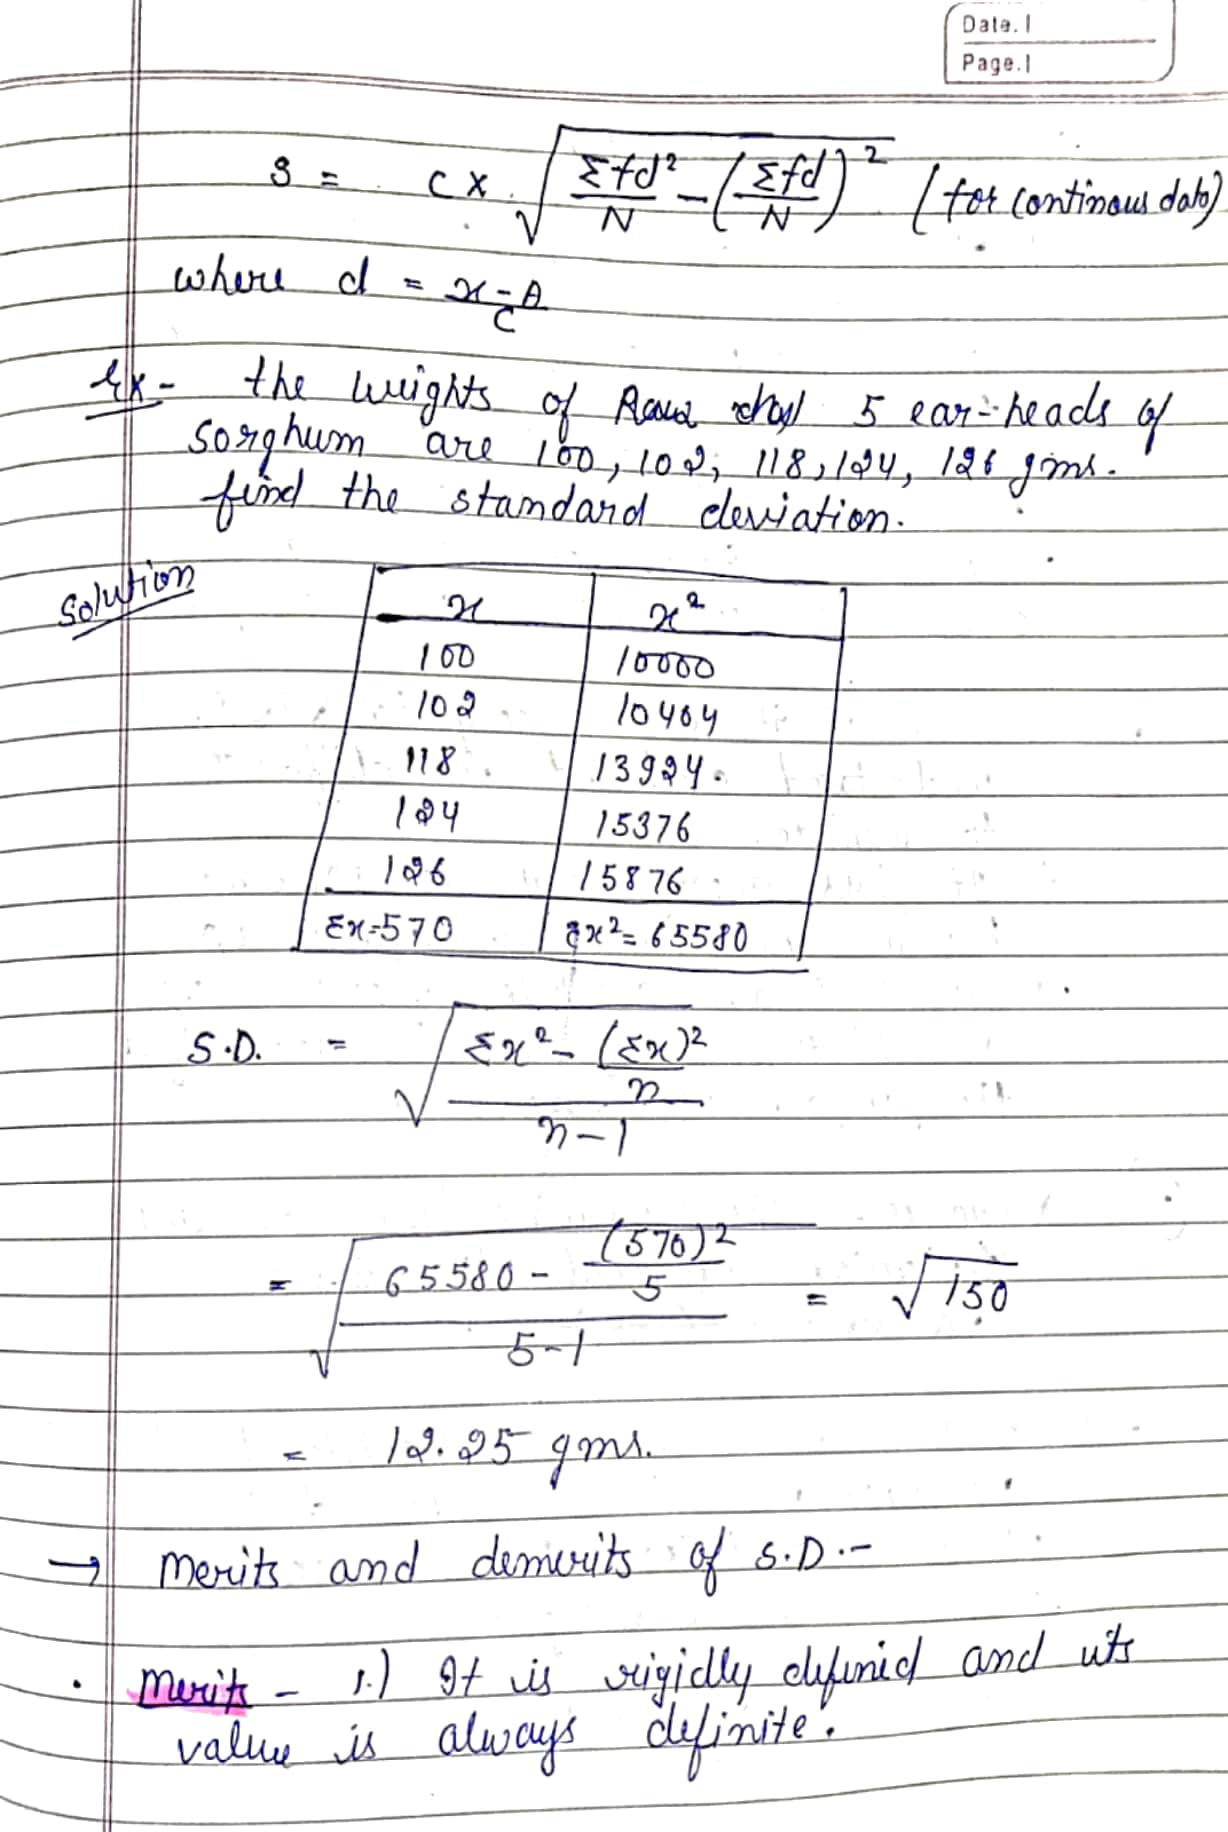 Date.
Page.
S = C × √(Σfd²/N - (Σfd/N)²) (for continous data)
where d = x-A/C
Ex- the weights of 5 ear-heads of
sorghum are 100, 102, 118, 124, 126 gms.
find the standard deviation.
Solution
x x²
100 10000
102 10404
118 13924
124 15376
126 15876
Σx=570 Σx²= 65580
S.D. = √((Σx² - (Σx)²/n)/(n-1))
= √((65580 - (570)²/5)/(5-1)) = √150
= 12.25 gms.
→ Merits and demerits of S.D.-
• Merits - 1.) It is rigidly defined and its
value is always definite.